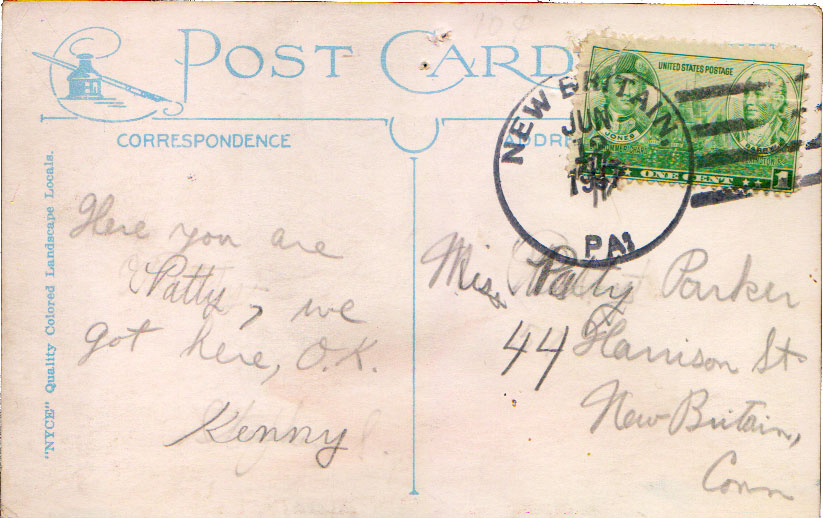 POST CARD
CORRESPONDENCE
ADDRE
UNITED STATES POSTAGE
JONES
BARRY
ONE CENT 1
NEW BRITAIN,
JUN
12
1937
PA.
"NYCE" Quality Colored Landscape Locals.
Here you are
Patty, we
got here, O.K.
Kenny
Miss Patty Parker
44 Harrison St
New Britain,
Conn